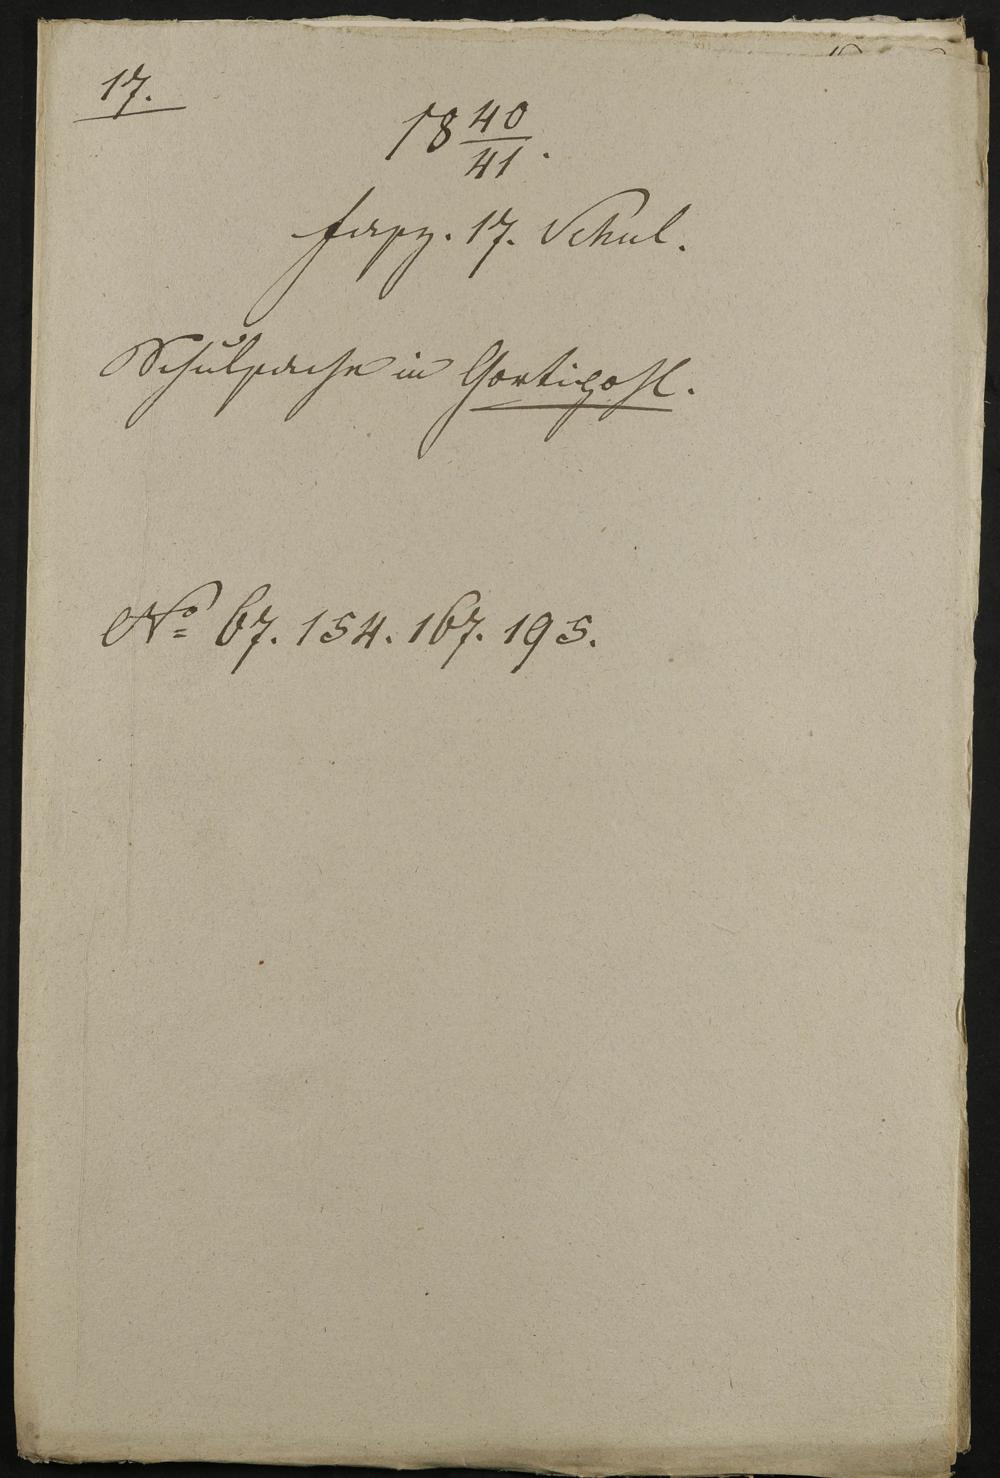 17.
18 40/41.
fasz. 17. Schul.
Schulsache in Gortipohl.
No 67. 154. 167. 195.